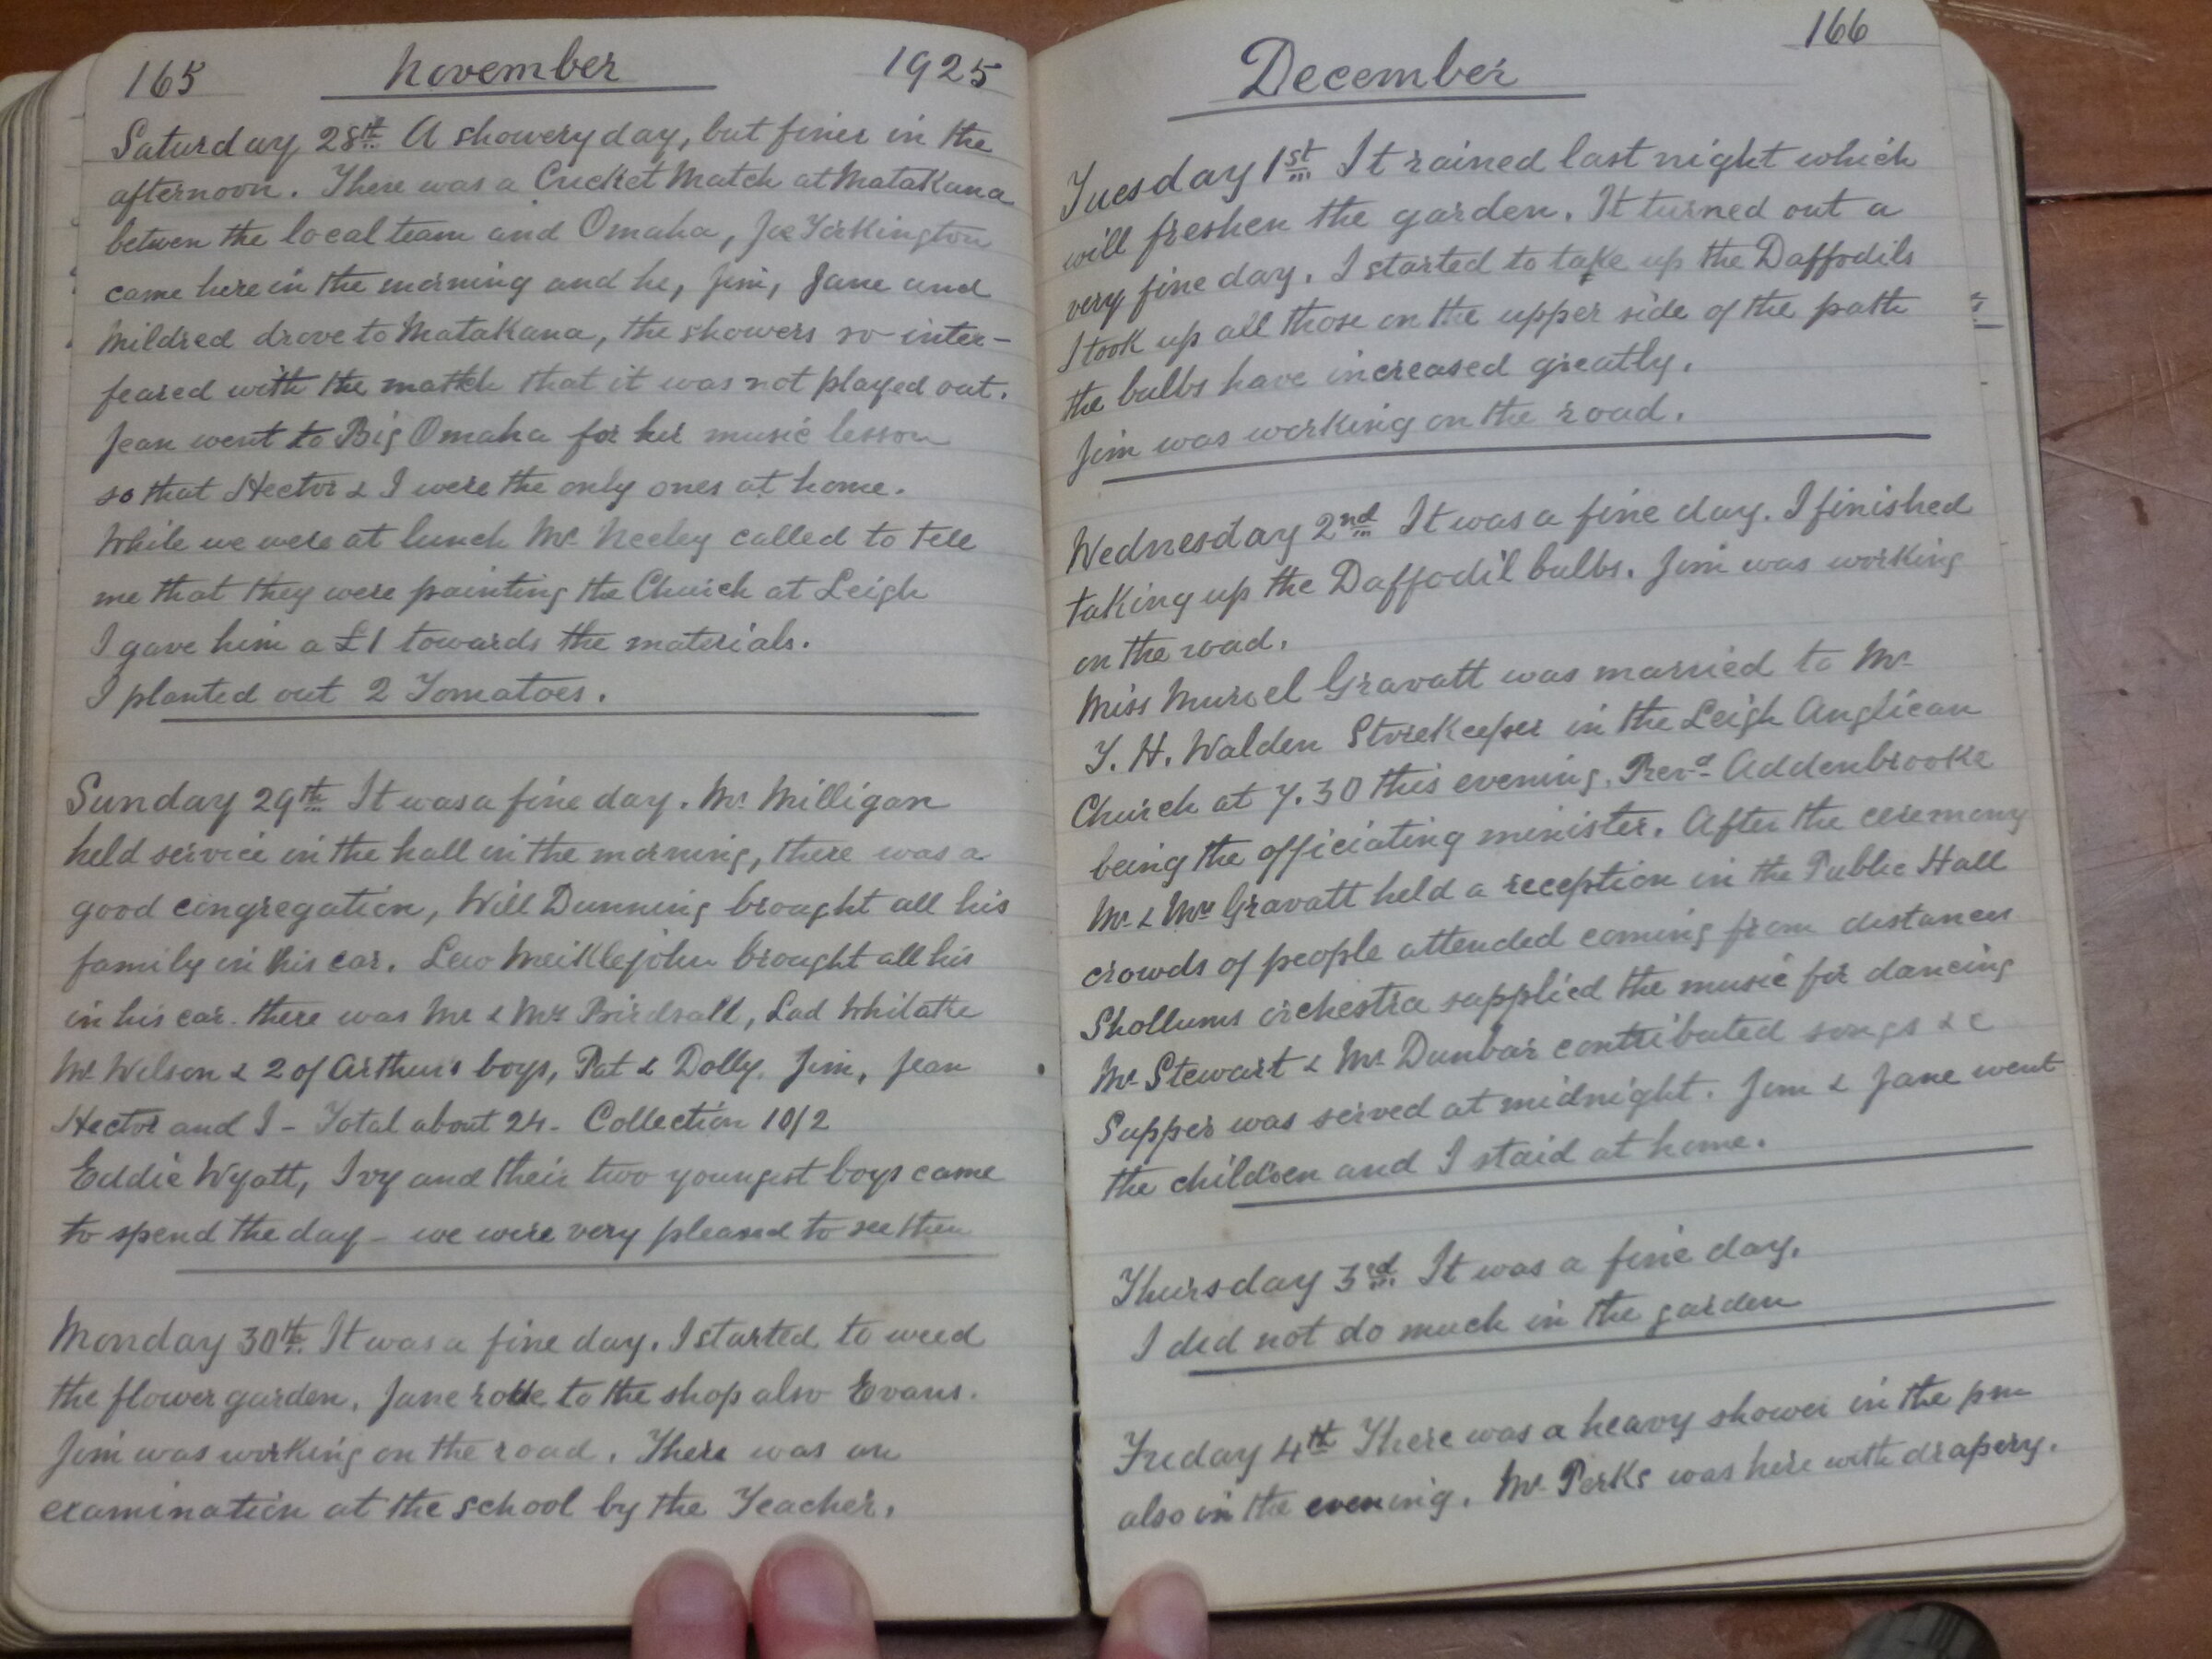 165 November 1925
Saturday 28th A showery day, but finer in the
afternoon. There was a Cricket Match at Matakana
betwen the local team and Omaha, Joe Torkington
came here in the morning and he, Jim, Jane and
Mildred drove to Matakana, the showers so inter-
feared with the match that it was not played out.
Jean went to Big Omaha for her music lesson
so that Hector & I were the only ones at home.
While we were at lunch Mr Neeley called to tell
me that they were painting the Church at Leigh
I gave him a £1 towards the materials.
I planted out 2 Tomatoes.
Sunday 29th It was a fine day. Mr Milligan
held service in the hall in the morning, there was a
good congregation, Will Dunning brought all his
family in his car. Lew Meiklejohn brought all his
in his car. there was Mr & Mrs Birdsall, Lad
Mr Wilson & 2 of Arthurs boys, Pat & Dolly. Jim, Jean
Hector and I - Total about 24 - Collection 10/2
Eddie Wyatt, Ivy and their two youngest boys came
to spend the day - we were very pleased to see them
Monday 30th It was a fine day. I started to weed
the flower garden. Jane rode to the shop also Evans.
Jim was working on the road. There was an
examination at the school by the Teacher.
December 166
Tuesday 1st It rained last night which
will freshen the garden. It turned out a
very fine day. I started to take up the Daffodils
I took up all those on the upper side of the path
the bulbs have increased greatly.
Jim was working on the road.
Wednesday 2nd It was a fine day. I finished
taking up the Daffodil bulbs. Jim was working
on the road.
Miss Muriel Gravatt was married to Mr
T. H. Walden Storekeeper in the Leigh Anglican
Church at 7.30 this evening. Revd Addenbrooke
being the officiating minister. After the ceremony
Mr & Mrs Gravatt held a reception in the Public Hall
crowds of people attended coming from distances
Shollums orchestra supplied the music for dancing
Mr Stewart & Mr Dunbar contributed songs &c
Supper was served at midnight. Jim & Jane went
the children and I staid at home.
Thursday 3rd It was a fine day.
I did not do much in the garden
Friday 4th There was a heavy shower in the pm
also in the evening. Mr Perks was here with drapery.